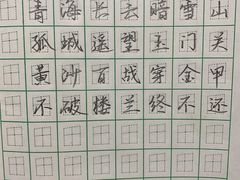 青海长云暗雪山
孤城遥望玉门关
黄沙百战穿金甲
不破楼兰终不还